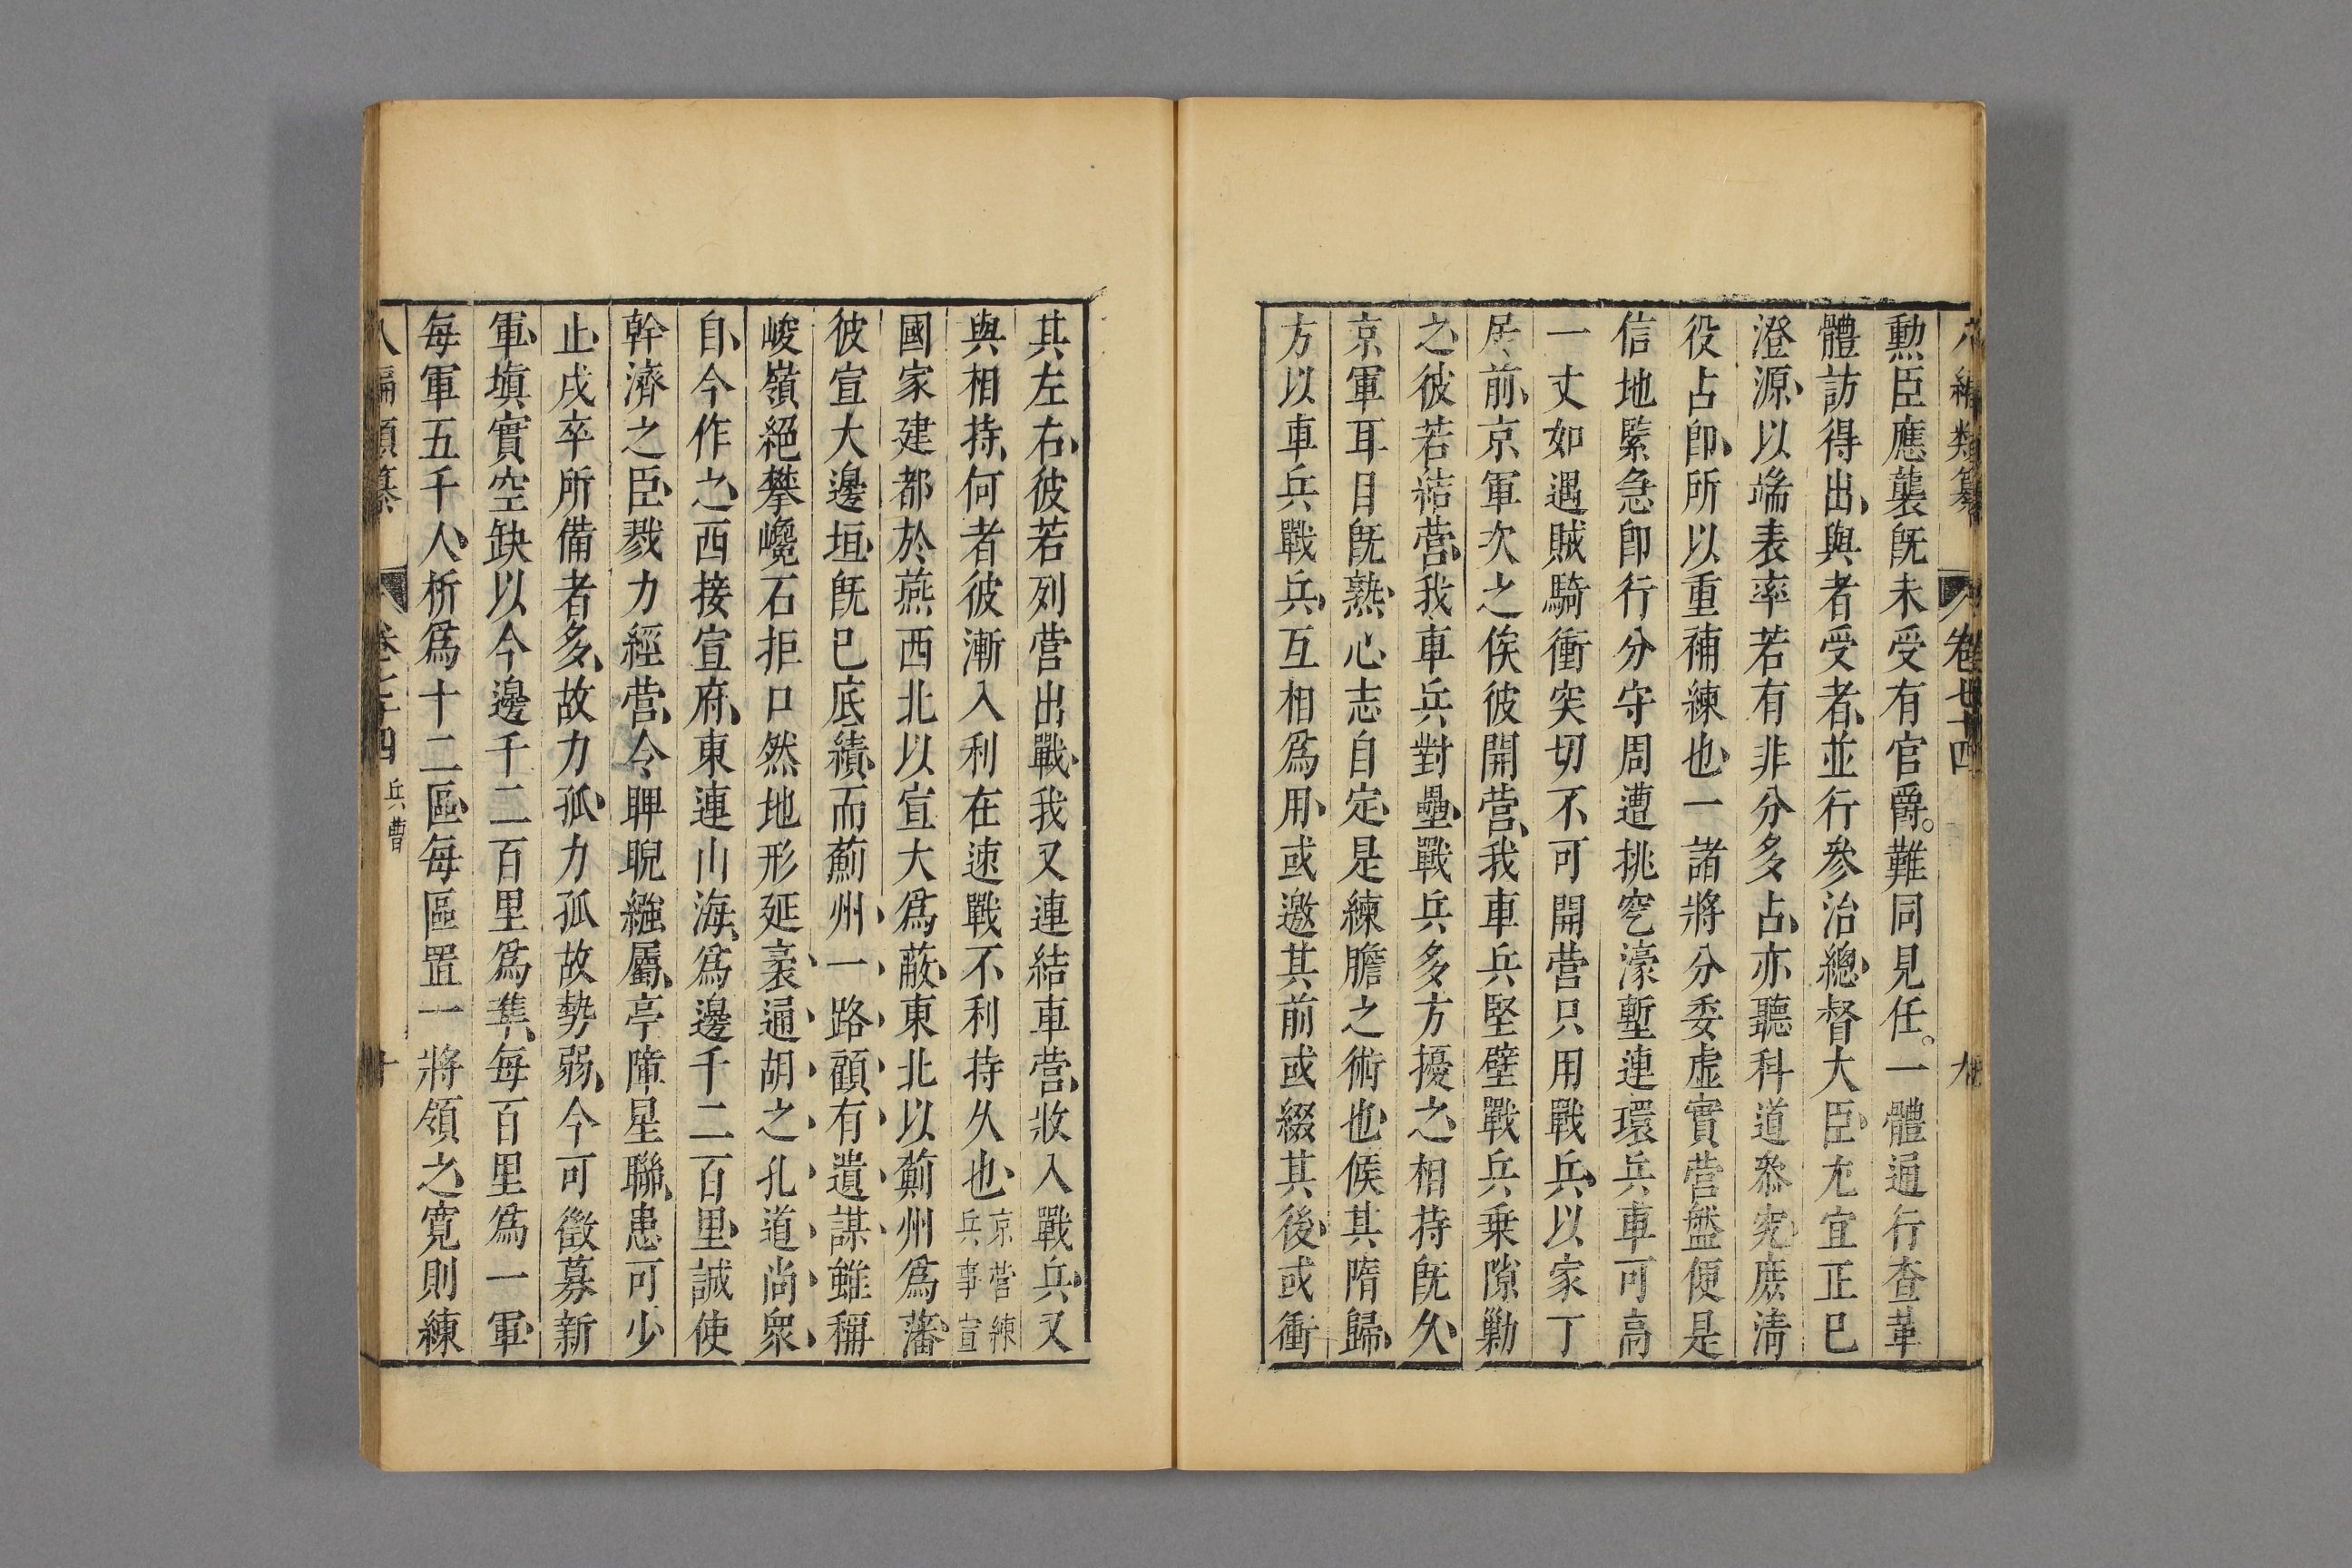 八編類纂 卷七十四 九
勲臣應襲旣未受有官爵。難同見任。一體通行查革
體訪得出、與者受者、並行參治總督大臣、尤宜正巳
澄源、以端表率若有非分多占、亦聽科道叅究、庶清
役占卽、所以重補練也、一諸將分委虛實營盤便是
信地緊急卽行分守周遭挑穵濠塹連環兵車可高
一丈如遇賊騎衝突切不可開營只用戰兵、以家丁
居前、京軍次之俟彼開營、我車兵堅壁戰兵乗隙勦
之、彼若結營、我車兵對壘、戰兵多方擾之、相持旣久、
京軍耳目旣熟、心志自定、是練膽之術也、候其隋歸、
方以車兵戰兵、互相爲用、或邀其前或綴其後、或衝
其左右、彼若列營出戰、我又連結車營、收入戰兵、又
與相持、何者彼漸入利在速戰不利持久也、京營練兵事宣
國家建都於燕西北以宣大爲蔽、東北以薊州爲藩、
彼宣大邊垣、旣巳底績、而薊州、一、路、顧、有、遺、謀、雖稱
峻嶺絕攀巉石拒口然地形延袤、通、胡、之、孔、道、尚、衆、
自、今作之、西接宣府、東連山海、爲邊千二百里、誠使
幹濟之臣、戮力經營、令睥睨繈屬、亭障星聯、患可少
止、戍卒所備者多、故力孤、力孤故勢弱、今可徵募新
軍、塡實空缺以今邊千二百里爲準、每百里爲一軍、
每軍五千人、析爲十二區、每區置一將領之、寬則練
八編類纂 卷七十四 兵曹 十